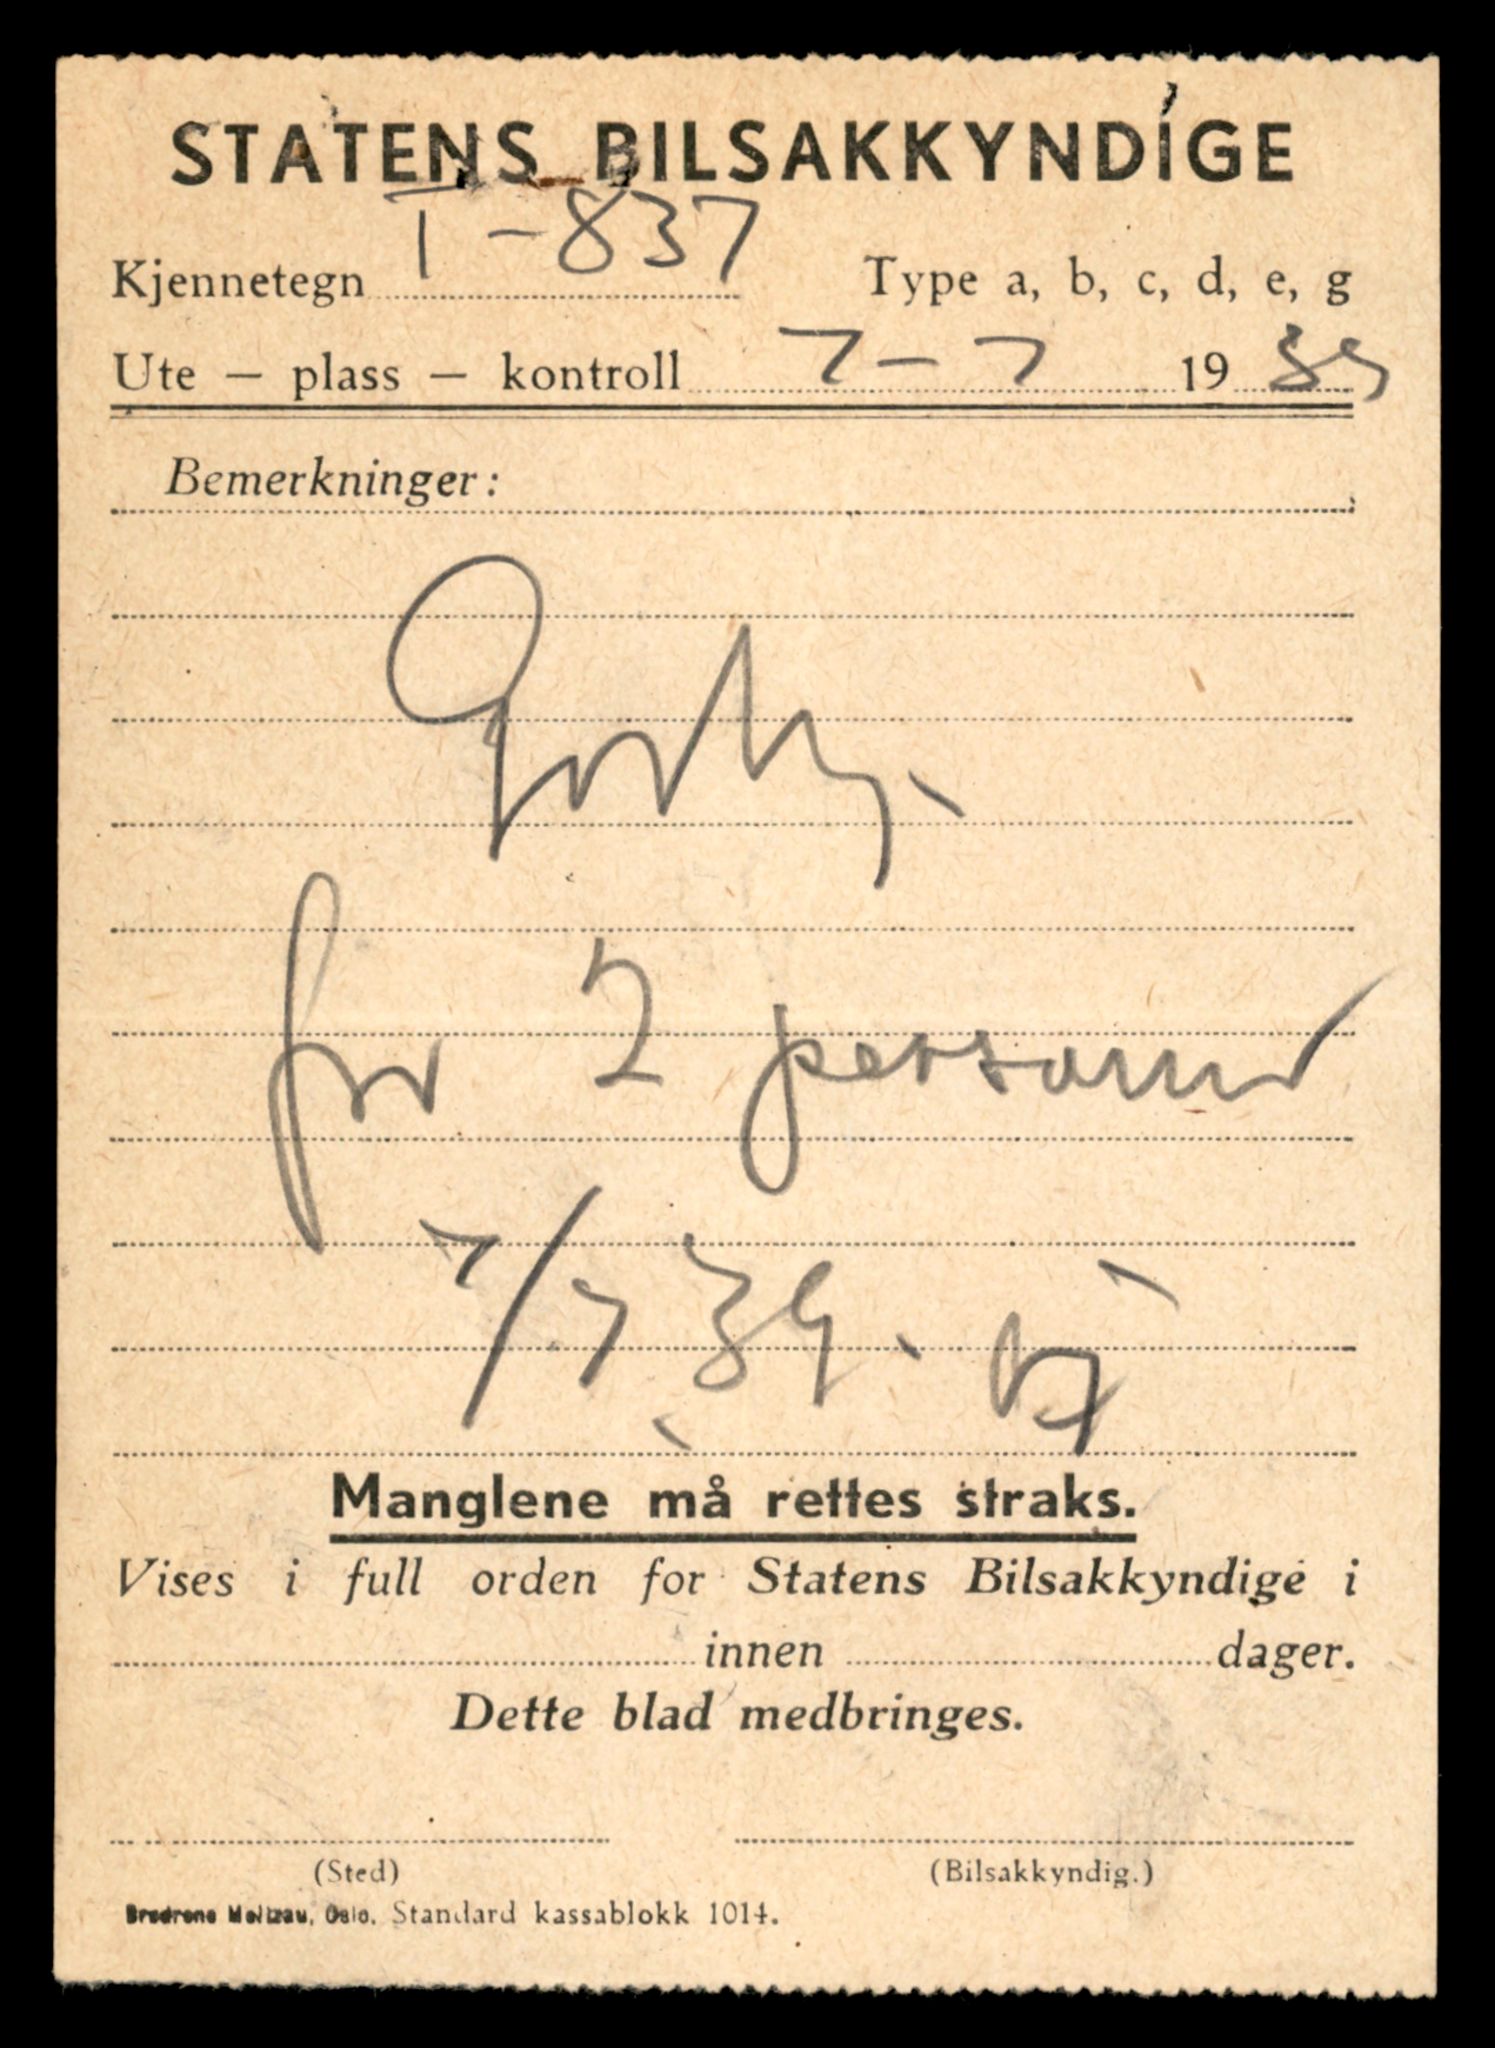 STATENS BILSAKKYNDIGE
Kjennetegn T-837 Type a, b, c, d, e, g
Ute — plass — kontroll 7-7 1939
Bemerkninger:
for 2 personer
7/7 39.
Manglene må rettes straks.
Vises i full orden for Statens Bilsakkyndige i
innen dager.
Dette blad medbringes.
(Sted) (Bilsakkyndig.)
Brødrene Meltzau, Oslo. Standard kassablokk 1014.